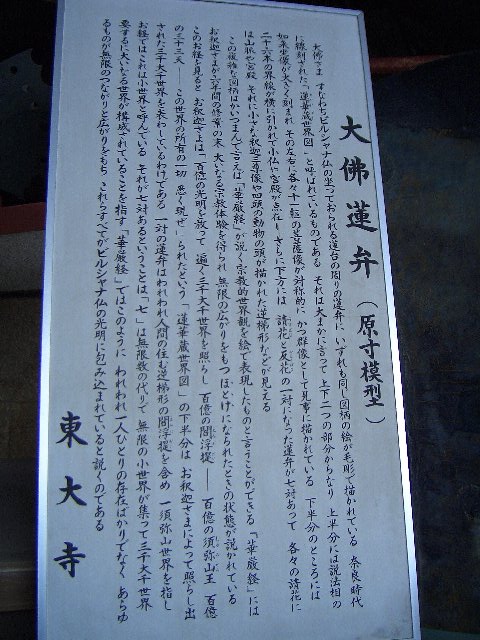 大佛蓮弁（原寸模型）
大佛さま すなわちビルシャナ仏の坐っておられる蓮台の周りの蓮弁に いずれも同じ図柄の絵が毛彫で描かれている 奈良時代
に線刻された「蓮華蔵世界図」と呼ばれているものである それは大まかに言って 上下二つの部分からなり 上半分には説法相の
如来坐像が大きく刻まれ その左右に各々十一躰の菩薩像が対称的に かつ群像として見事に描かれている 下半分のところには
二十六本の界線が横に引かれて小仏や宮殿が点在し さらに下方には 請花と反花の一対になった蓮弁が七対あって 各々の請花に
は山脈や宮殿 それに小さな釈迦三尊像や四頭の動物の頭が描かれた逆梯形などが見える
この複雑な図柄はかいつまんで言えば「華厳経」が説く宗教的世界観を絵で表現したものと言うことができる 「華厳経」には
お釈迦さまが六年間の修業の末 大いなる宗教体験を得られ 無限の広がりをもつほとけになられたときの状態が説かれている
このお経を見ると お釈迦さまは「百億の光明を放って 遍く三千大千世界を照らし 百億の閻浮提 ―― 百億の須弥山王 百億
の三十三天 ―― この世界の所有の一切 悉く現ぜしられたという 「蓮華蔵世界図」の下半分は お釈迦さまによって照らし出
された三千大千世界を表わしているわけである 一対の蓮弁はわれわれ人間の住む逆梯形の閻浮提を含め 一須弥山世界を指し
お経ではこれは小世界と呼んでいる それが七対あるということは「七」は無限数の代りで 無限の小世界が集って三千大千世界
要するに大いなる世界が構成されていることを指す 「華厳経」ではこのように われわれ一人ひとりの存在ばかりでなく あらゆ
るものが無限のつながりと広がりをもち これらすべてがビルシャナ仏の光明に包み込まれていると説くのである
東大寺